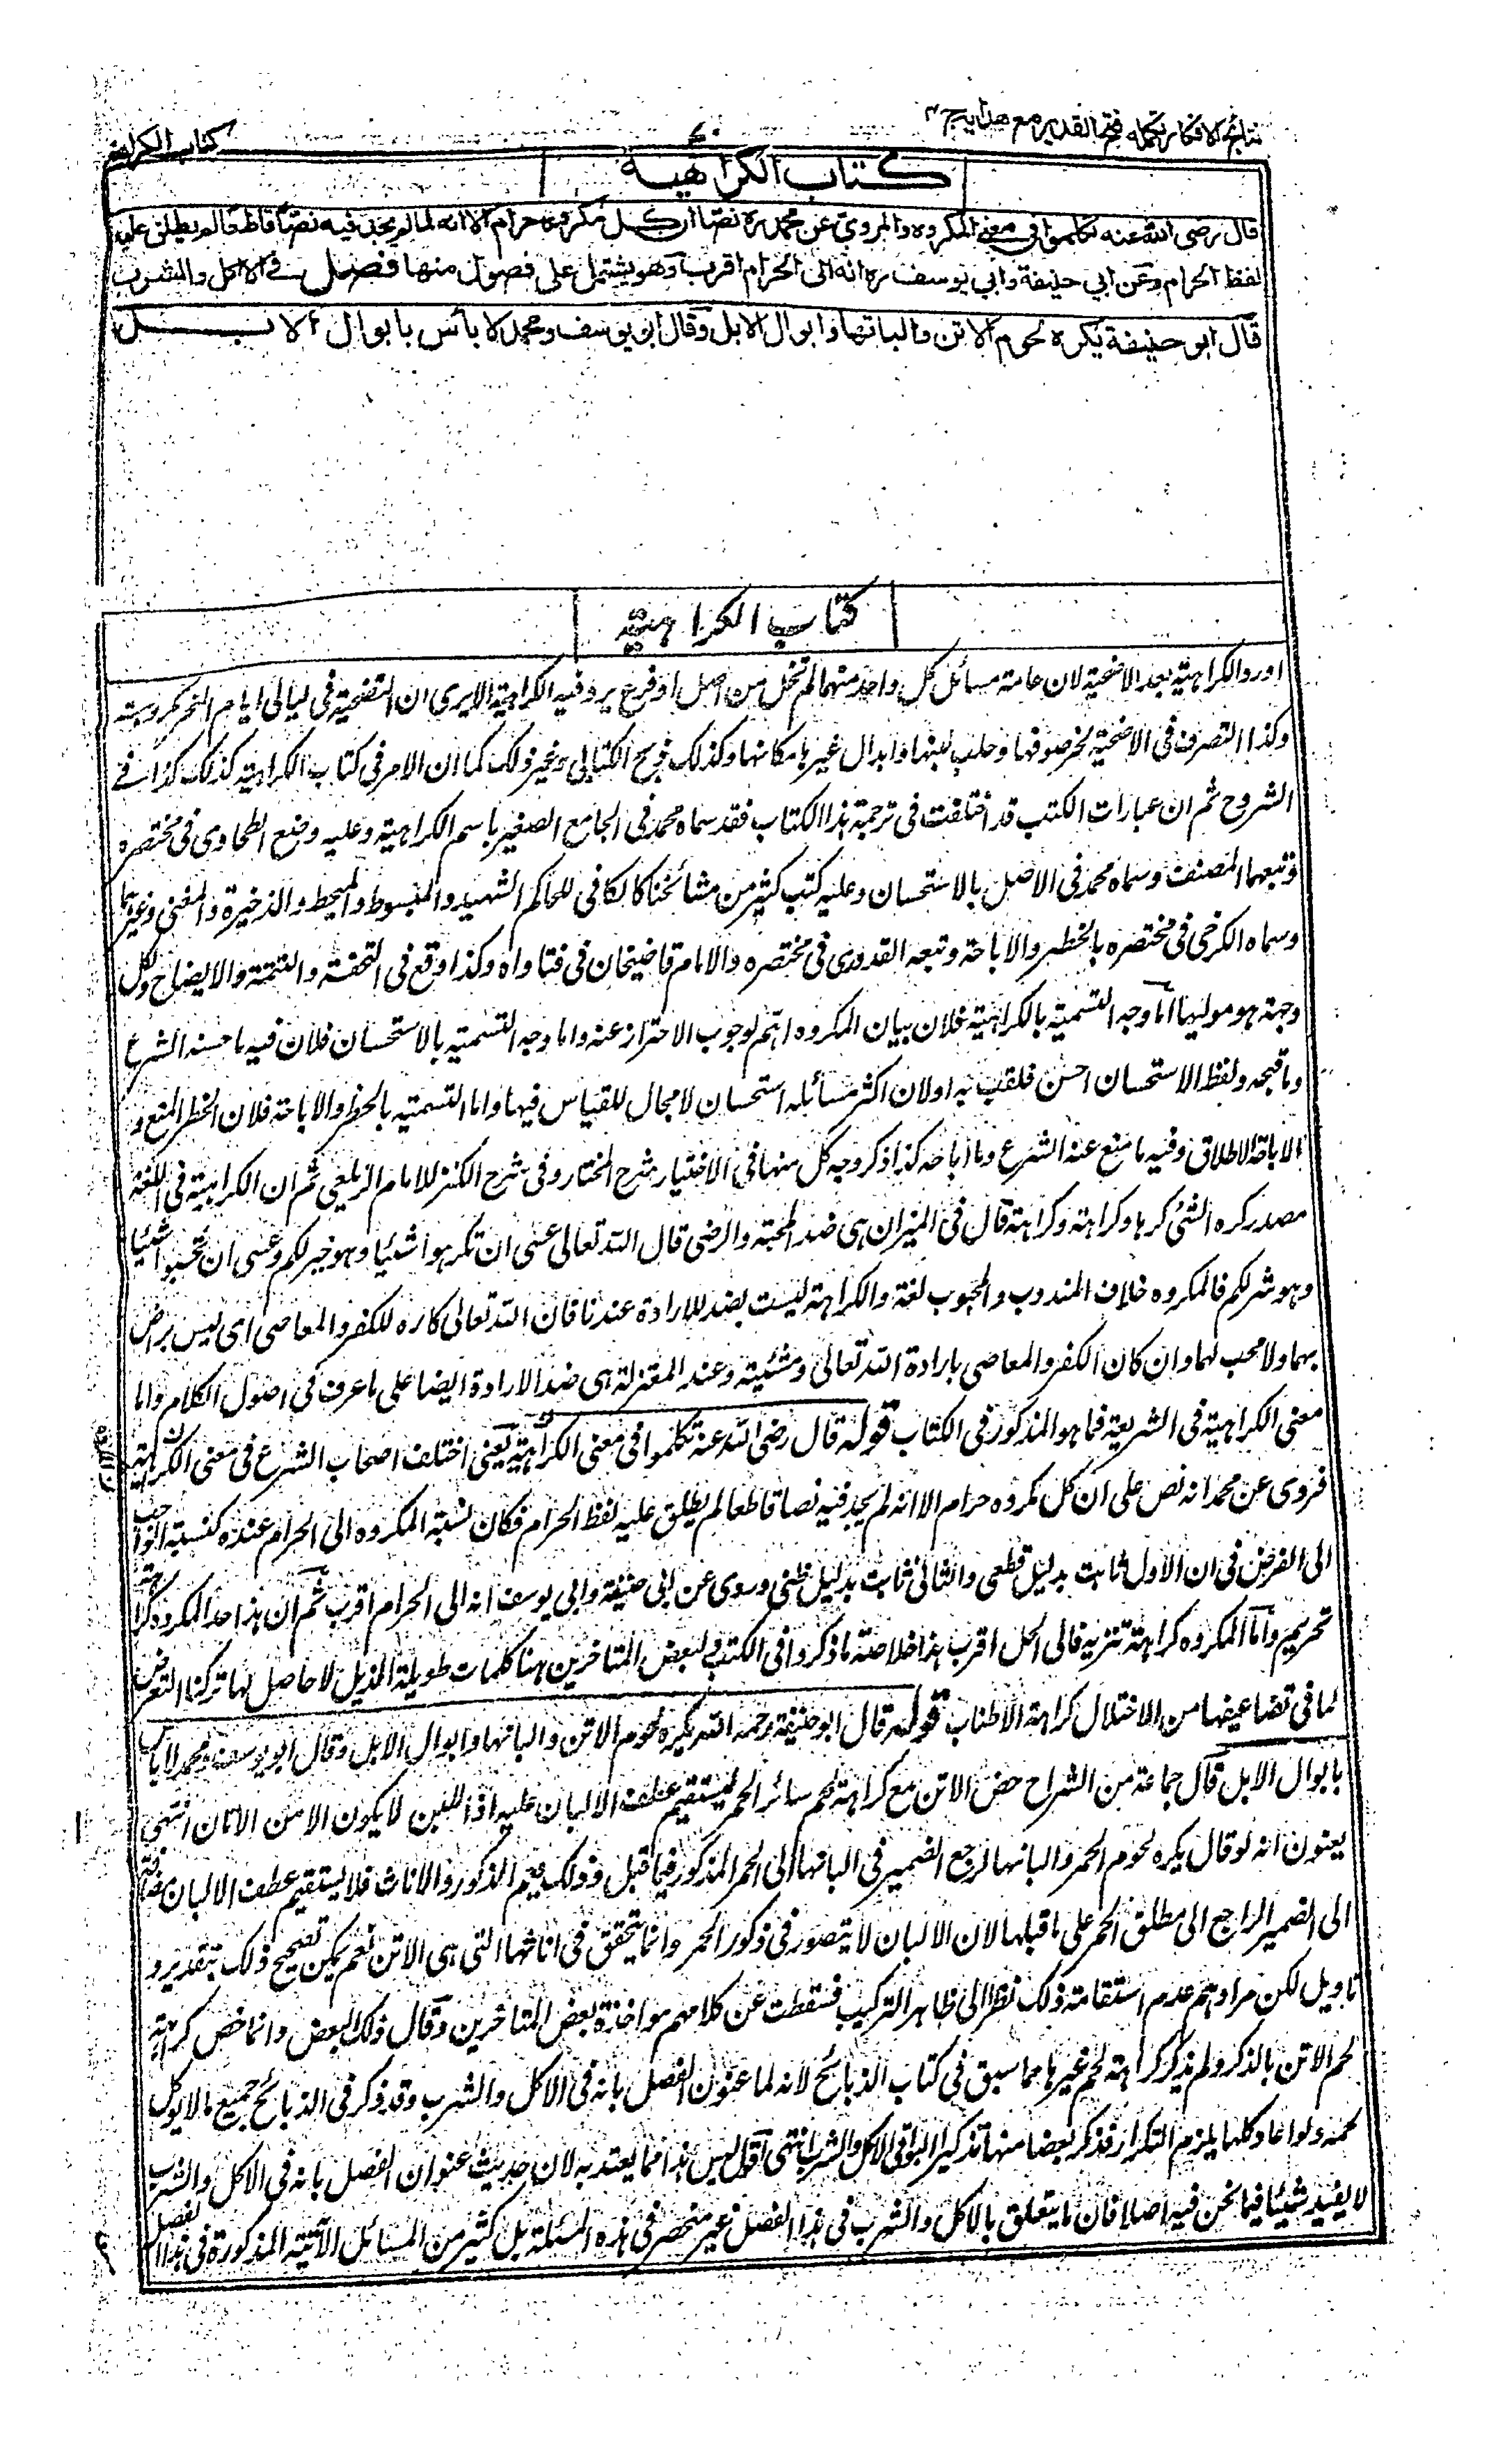 نتائج الافكار تكمله فتح القدير مع هدايه ج ٤
كتاب الكراهية
كتاب الكراهية
قال رضى الله عنه تكلموا فى معنى المكروه والمروى عن محمد ره نصا ان كل مكروه حرام الا انه لما لم يجد فيه نصا قاطعا لم يطلق عليه
لفظ الحرام وعن ابي حنيفة وابي يوسف ره انه الى الحرام اقرب وهو يشتمل على فصول منها فصل فى الاكل والشرب
قال ابو حنيفة يكره لحوم الاتن والبانها وابوال الابل وقال ابو يوسف ومحمد لا بأس بابوال الابل
كتاب الكراهية
اورد الكراهية بعد الاضحية لان عامة مسائل كل واحد منهما لم تخل من اصل او فرع يرد فيه الكراهية الا يرى ان التضحية فى ليالى ايام النحر مكروهة
وكذا التصرف فى الاضحية بجز صوفها وحلب لبنها وابدال غيرها مكانها وكذلك ذبح الكتابى وغير ذلك كما ان الامر فى كتاب الكراهية كذلك كذا فى
الشروح ثم ان عبارات الكتب قد اختلفت فى ترجمة هذا الكتاب فقد سماه محمد فى الجامع الصغير باسم الكراهية وعليه وضع الطحاوى فى مختصره
وتبعهما المصنف وسماه محمد فى الاصل بالاستحسان وعليه كتب كثير من مشائخنا كالكافى للحاكم الشهيد والمبسوط والمحيط والذخيرة والمغنى وغيرها
وسماه الكرخى فى مختصره بالحظر والاباحة وتبعه القدورى فى مختصره والامام قاضيخان فى فتاواه وكذا وقع فى التحفة والتتمة والايضاح ولكل
وجهة هو موليها اما وجه التسمية بالكراهية فلان بيان المكروه اهم لوجوب الاحتراز عنه واما وجه التسمية بالاستحسان فلان فيه ما حسنه الشرع
وما قبحه ولفظ الاستحسان احسن فلقب به او لان اكثر مسائله استحسان لا مجال للقياس فيها واما التسمية بالحظر والاباحة فلان الحظر المنع و
الاباحة الاطلاق وفيه ما منع عنه الشرع وما اباحه كذا ذكر وجه كل منها فى الاختيار شرح المختار وفى شرح الكنز للامام الزيلعى ثم ان الكراهية فى اللغة
مصدر كره الشئ كرها وكراهة وكراهية قال فى الميزان هى ضد المحبة والرضى قال الله تعالى عسى ان تكرهوا شيئا وهو خير لكم وعسى ان تحبوا شيئا
وهو شر لكم فالمكروه خلاف المندوب والمحبوب لغة والكراهة ليست بضد للارادة عندنا فان الله تعالى كاره للكفر والمعاصى اى ليس براض
بهما ولا محب لهما وان كان الكفر والمعاصى بارادة الله تعالى ومشئيته وعند المعتزلة هى ضد الارادة ايضا على ما عرف فى اصول الكلام واما
معنى الكراهية فى الشريعة فما هو المذكور فى الكتاب قوله قال رضى الله عنه تكلموا فى معنى الكراهية يعنى اختلف اصحاب الشرع فى معنى الكراهية
فروى عن محمد انه نص على ان كل مكروه حرام الا انه لم يجد فيه نصا قاطعا لم يطلق عليه لفظ الحرام فكان نسبة المكروه الى الحرام عنده كنسبة الواجب
الى الفرض فى ان الاول ثابت بدليل قطعى والثانى ثابت بدليل ظنى وروى عن ابى حنيفة وابى يوسف انه الى الحرام اقرب ثم ان هذا حد المكروه كراهة
تحريم واما المكروه كراهة تنزيه فالى الحل اقرب هذا خلاصة ما ذكروا فى الكتب ولبعض المتاخرين هنا كلمات طويلة الذيل لا حاصل لها تركنا التعرض
لما فى تضاعيفها من الاختلال كراهة الاطناب قوله قال ابو حنيفة رحمه الله يكره لحوم الاتن والبانها وابوال الابل وقال ابو يوسف ومحمد لا باس
بابوال الابل قال جماعة من الشراح خص الاتن مع كراهة لحم سائر الحمر ليستقيم عطف الالبان عليه اذ اللبن لا يكون الا من الاتان انتهى
يعنون انه لو قال يكره لحوم الحمر والبانها لرجع الضمير فى البانها الى الحمر المذكور فيما قبل وذلك يعم الذكور والاناث فلا يستقيم عطف الالبان مضافة
الى الضمير الراجع الى مطلق الحمر على ما قبلها لان الالبان لا يتصور فى ذكور الحمر وانما يتحقق فى اناثها التى هى الاتن نعم يمكن تصحيح ذلك بتقدير و
تاويل لكن مرادهم عدم استقامة ذلك نظرا الى ظاهر التركيب فسقطت عن كلامهم مواخذة بعض المتاخرين وقال ذلك البعض وانما خص كراهة
لحم الاتن بالذكر ولم يذكر كراهة لحم غيرها مما سبق فى كتاب الذبائح لانه لما عنون الفصل بانه فى الاكل والشرب وقد ذكر فى الذبائح جميع ما لا يوكل
لحمه ولو اعاد كلها يلزم التكرار فذكر بعضا منها تذكيرا لبواقى الاكل والشرب انتهى اقول ليس هذا مما يعتد به لان حديث عنوان الفصل بانه فى الاكل والشرب
لا يفيد شيئا فيما نحن فيه اصلا فان ما يتعلق بالاكل والشرب فى هذا الفصل غير منحصر فى هذه المسئلة بل كثير من المسائل الآتية المذكورة فى هذا الفصل